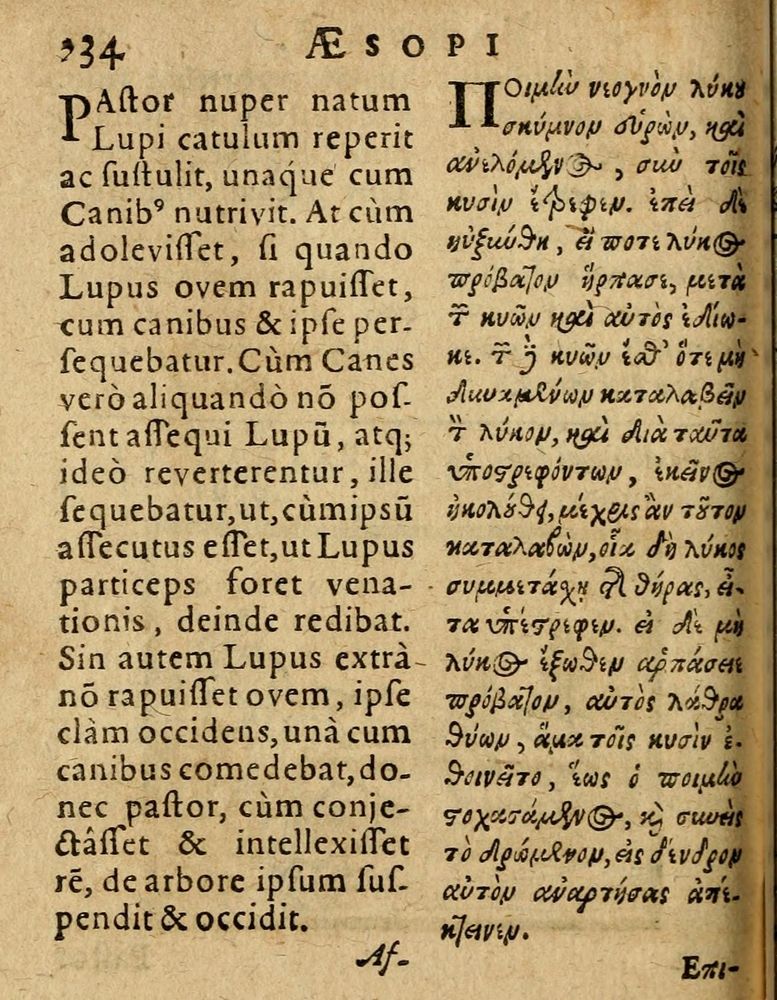 234 ÆSOPI
PAſtor nuper natum
Lupi catulum reperit
ac ſuſtulit, unaque cum
Canibꝰ nutrivit. At cùm
adoleviſſet, ſi quando
Lupus ovem rapuiſſet,
cum canibus & ipſe per-
ſequebatur. Cùm Canes
verò aliquandò nõ poſ-
ſent aſſequi Lupũ, atq;
ideò reverterentur, ille
ſequebatur, ut, cùm ipſũ
aſſecutus eſſet, ut Lupus
particeps foret vena-
tionis, deinde redibat.
Sin autem Lupus extrà
nõ rapuiſſet ovem, ipſe
clàm occidens, unà cum
canibus comedebat, do-
nec paſtor, cùm conje-
ctâſſet & intellexiſſet
rẽ, de arbore ipſum ſuſ-
pendit & occidit.
Af-
Ποιμὼ νεογνὸν λύκου
σκύμνον εὑρὼν, καὶ
ἀνελόμενος, σὺν τοῖς
κυσὶν ἔτρεφεν. ἐπεὶ δὲ
ηὐξήθη, εἴ ποτε λύκος
πρόβατον ἥρπασε, μετὰ
τῶν κυνῶν καὶ αὐτὸς ἐδίω-
κε. τῶν δὲ κυνῶν ἔσθ' ὅτε μὴ
δυναμένων καταλαβεῖν
τὸν λύκον, καὶ διὰ ταῦτα
ὑποστρεφόντων, ἐκεῖνος
ἠκολούθει, μέχρις ἂν τοῦτον
καταλαβὼν, οἷα δὴ λύκος
συμμετάσχῃ τῆς θήρας, εἶ-
τα ὑπέστρεφεν. εἰ δὲ μὴ
λύκος ἔξωθεν ἁρπάσειε
πρόβατον, αὐτὸς λάθρα
θύων, ἅμα τοῖς κυσὶν ἐ-
θοινεῖτο, ἕως ὁ ποιμὼ
στοχασάμενος, καὶ συνεὶς
τὸ δρώμενον, εἰς δένδρον
αὐτὸν ἀναρτήσας ἀπέ-
κτεινεν.
Επι-